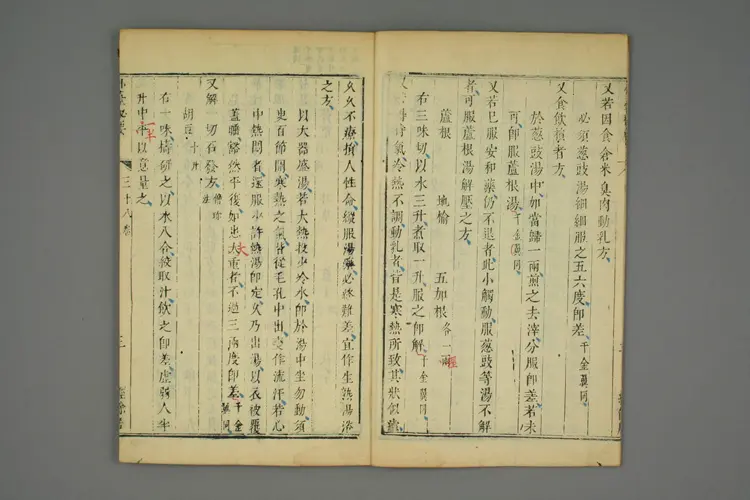 又若因食倉米臭肉動乳方
必須葱豉湯細細服之五六度即差千金翼同
又食飲積者方
於葱豉湯中如當歸一兩煎之去滓分服即差若未
可即服蘆根湯千金翼同
又若已服安和藥仍不退者此小觸動服葱豉等湯不解
者可服蘆根湯解壓之方
蘆根 地榆 五加根各一兩
右三味切以水三升煮取一升服之即解千金翼同
氣冷熱不調動乳者皆是寒熱所致其狀似瘧
久久不療損人性命縱服湯藥必終難差宜作生熟湯浴
之方
以大器盛湯若大熱投少冷水即於湯中坐勿動須
臾百節開寒熱之氣皆從毛孔中出變作流汗若心
中熱悶者還服少許熱湯即定久乃出湯以衣被覆
蓋臥豁然平復如患大重者不過三兩度即差千金翼同
大
又解一切石發方僧珍法
胡豆半升
右一味擣研之以水八合絞取汁飲之即差虛弱人半
升中半以意量之
三十八卷
三
經餘居